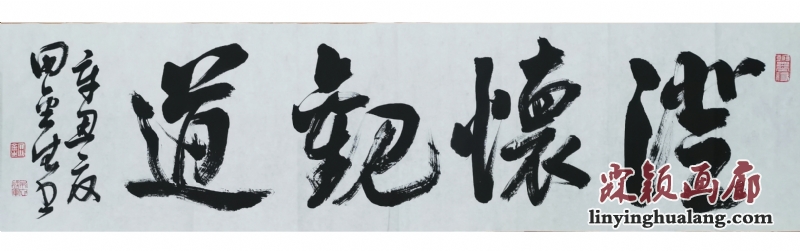 澄懷觀道
辛丑夏
田 生书
霖颖画廊
linyinghualang.com